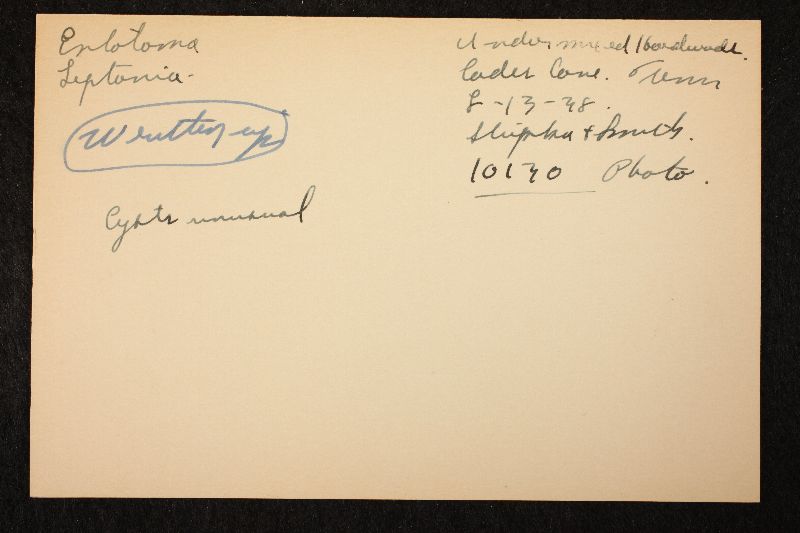 Entoloma
Leptonia-
Written up
Cysts unusual
Under mixed Hardwoods.
Cades Cove. Tenn
8-13-38.
+ Smith.
10130 Photo.